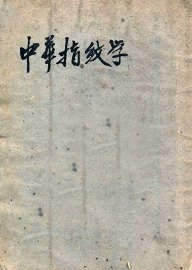 中華指纹学